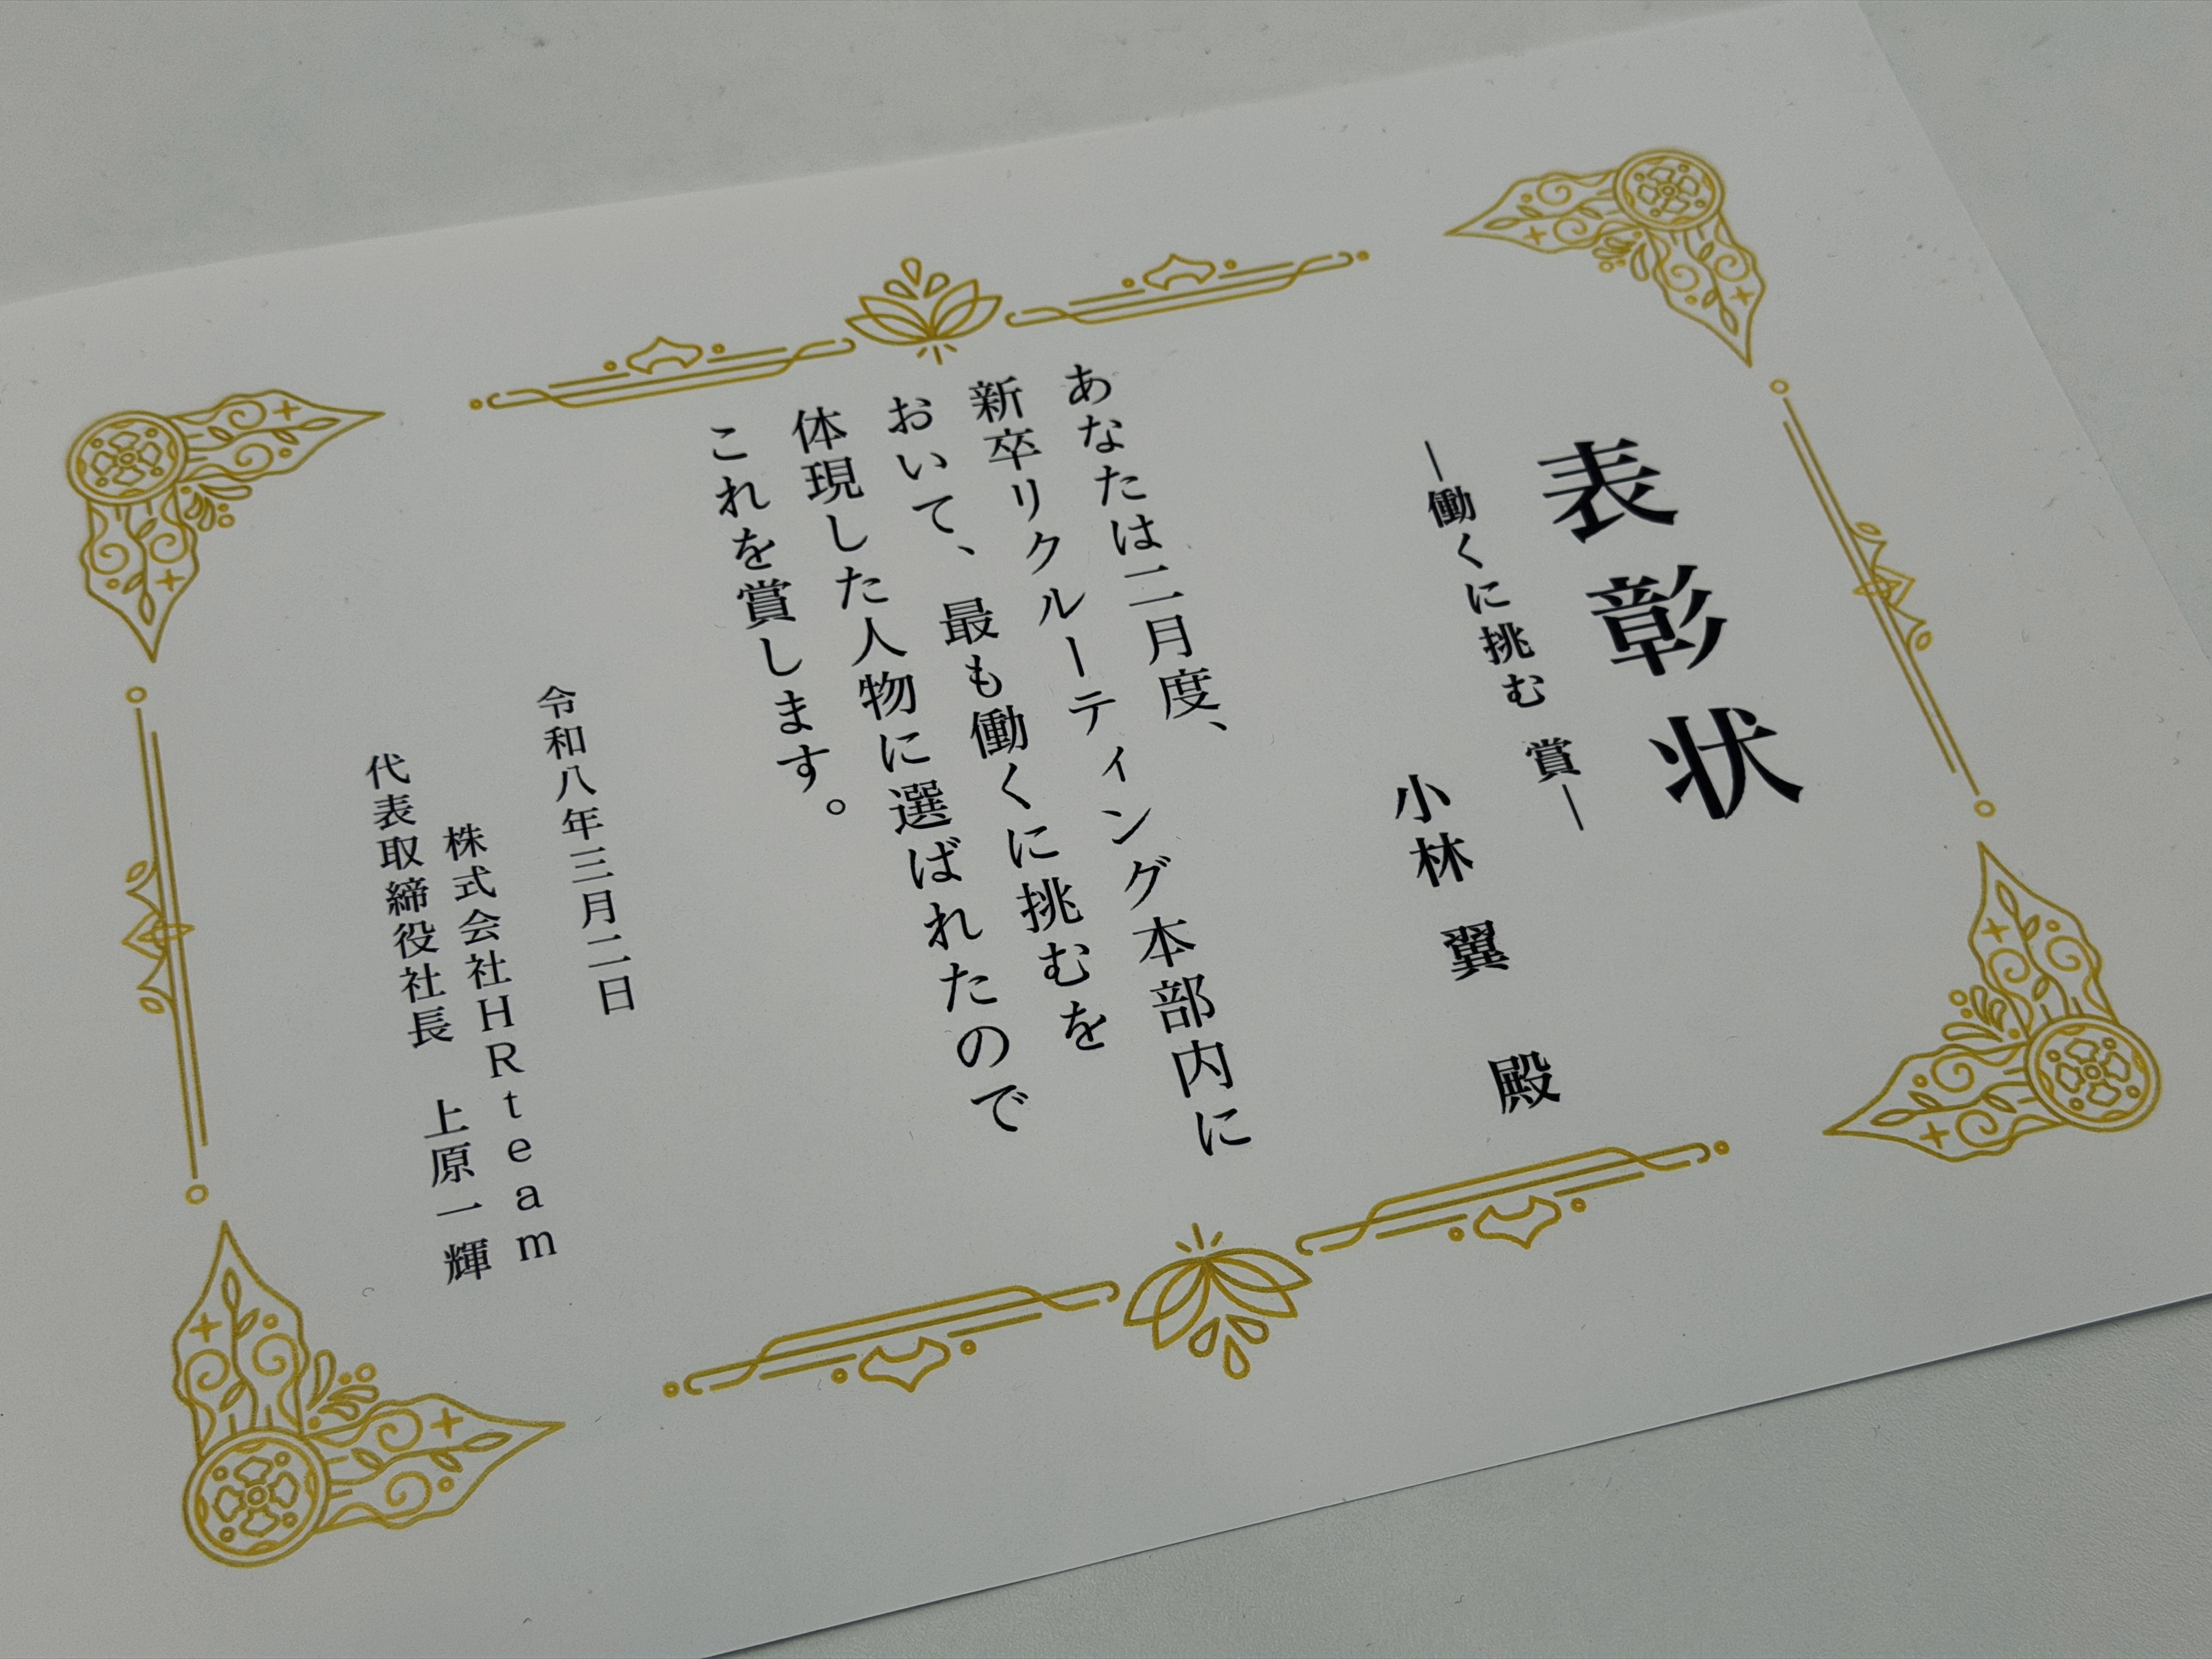 表彰状
―働くに挑む 賞―
小林 翼 殿
あなたは二月度、
新卒リクルーティング本部内に
おいて、最も働くに挑むを
体現した人物に選ばれたので
これを賞します。
令和八年三月二日
株式会社HRteam
代表取締役社長 上原一輝